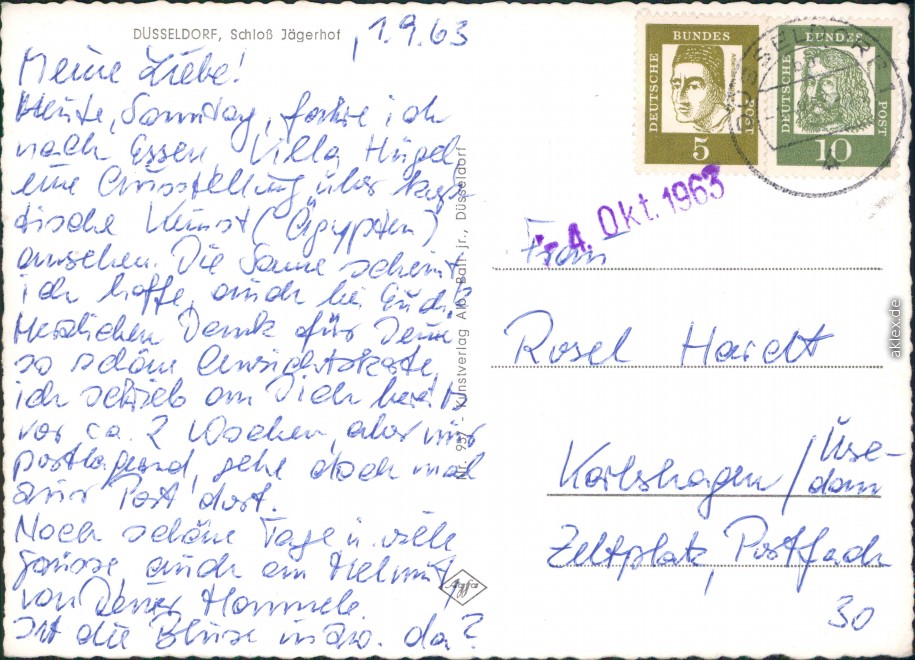 DÜSSELDORF, Schloß Jägerhof
1.9.63
Meine Liebe!
Heute, Sonntag, fahre ich
nach Essen, Villa Hügel
eine Ausstellung über kop-
tische Kunst (Ägypten)
ansehen. Die Sonne scheint,
ich hoffe, auch bei Euch!?
Herzlichen Dank für Deine
so schöne Ansichtskarte,
ich schrieb an Dich bereits
vor ca. 2 Wochen, aber nur
postlagernd, gehe doch mal
zur Post dort.
Noch schöne Tage u. viele
Grüsse, auch an Helmut,
von Deiner Hannele.
Ist die Bluse inzw. da?
Nr. 957 - Kunstverlag Alb. Barr jr., Düsseldorf
Agfa
DEUTSCHE BUNDESPOST 5
DEUTSCHE BUNDESPOST 10
DÜSSELDORF 1
-4. Okt. 1963
Frau
Rosel Hardt
Karlshagen / Use-
dom
Zeltplatz, Postfach
30
aklex.de